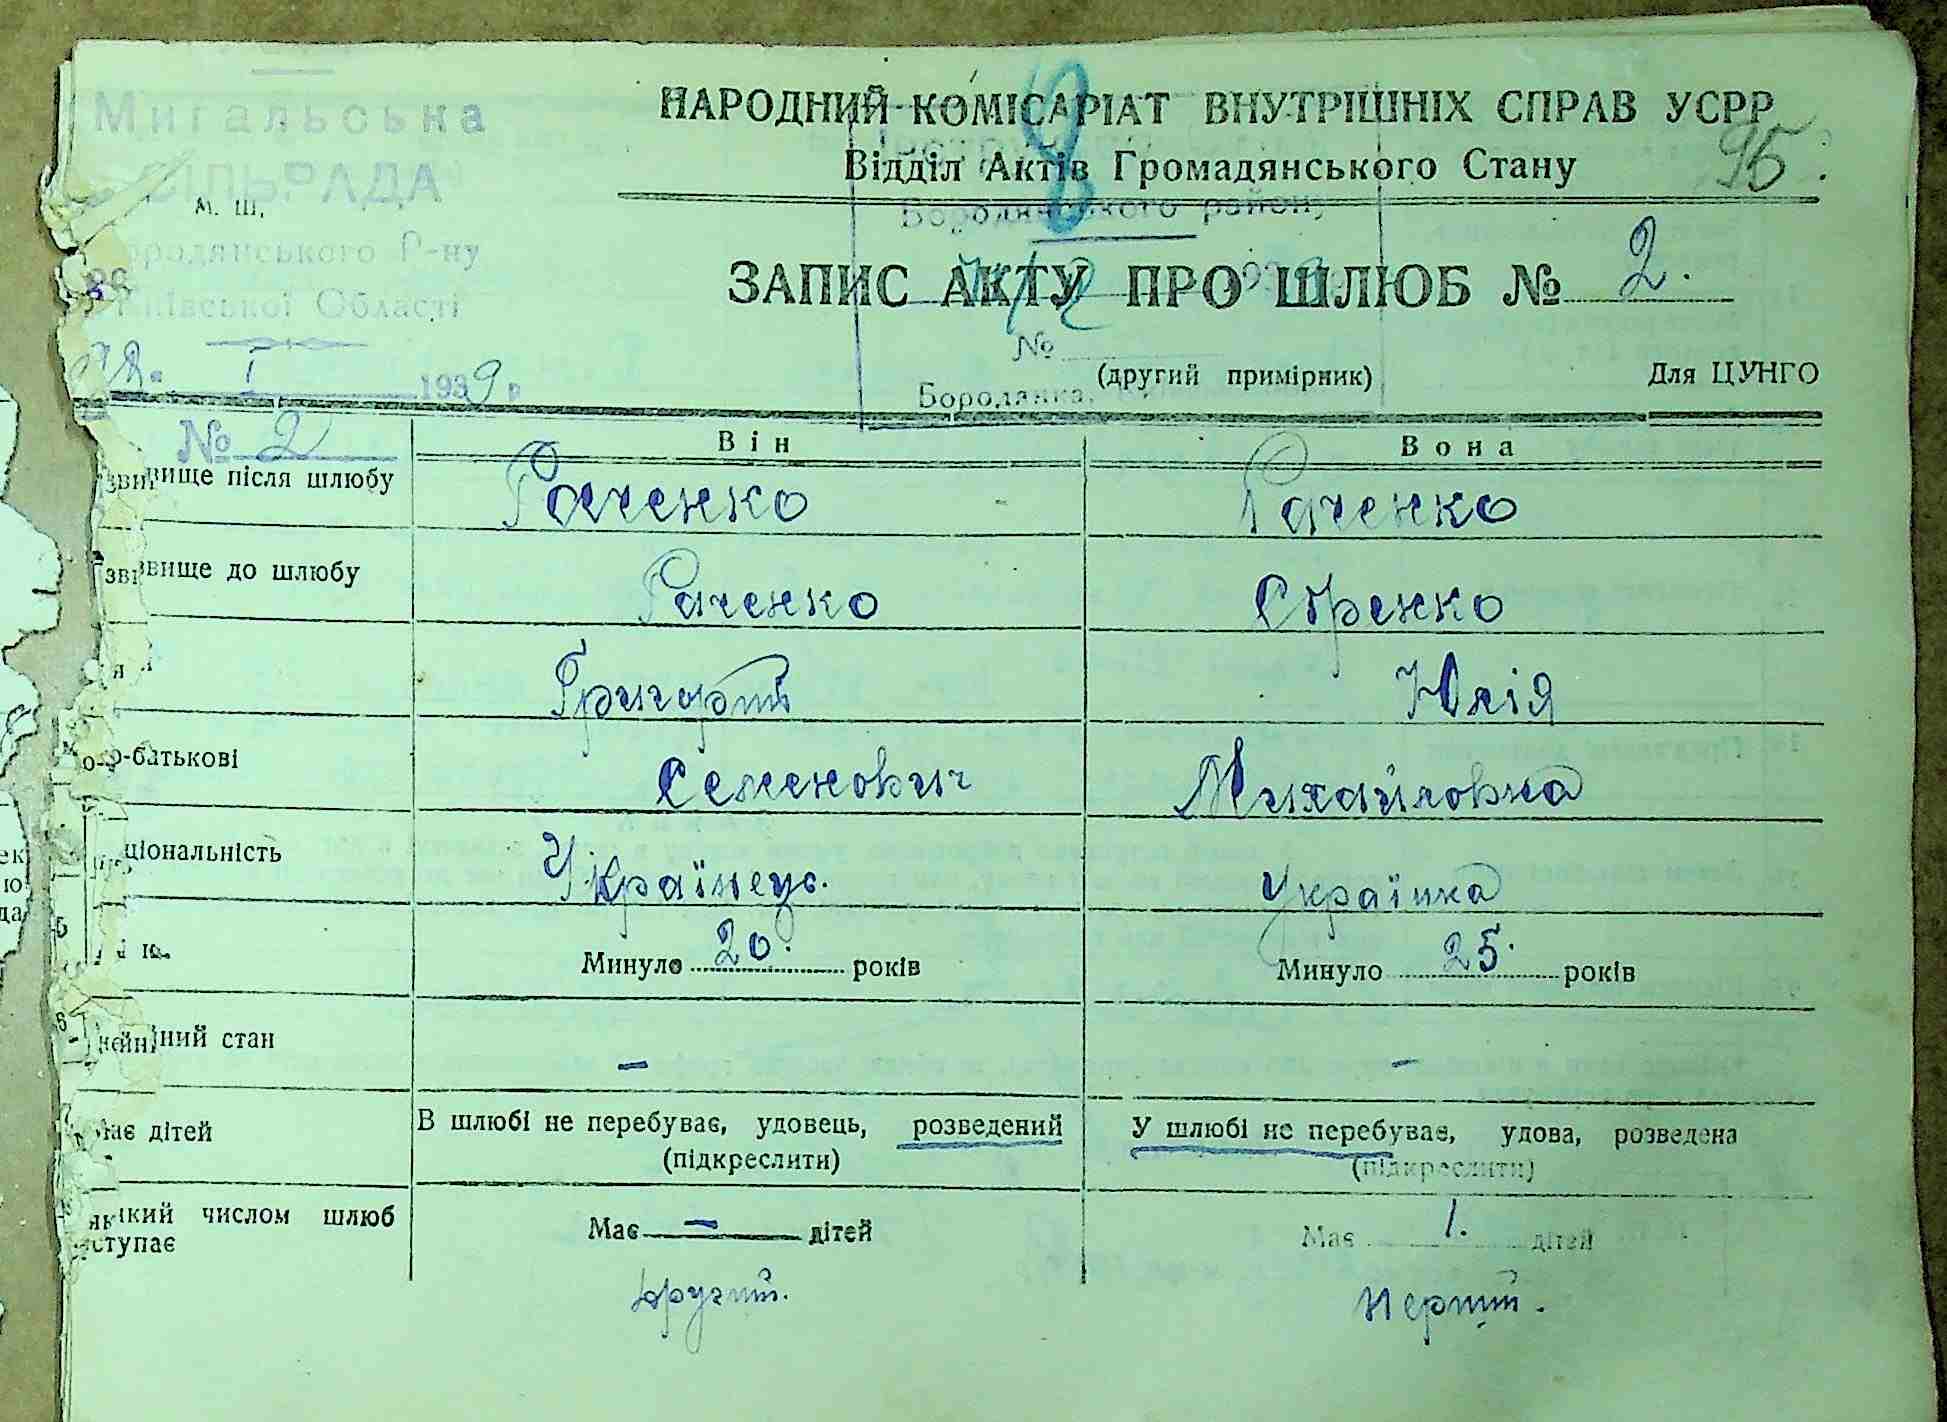 Мигальська
СІЛЬРАДА
м. ш.
Бородянського Р-ну
Київської Області
I 1939 р
№ 2
НАРОДНИЙ КОМІСАРІАТ ВНУТРІШНІХ СПРАВ УСРР
Відділ Актів Громадянського Стану
95
8
Бородянського району
ЗАПИС АКТУ ПРО ШЛЮБ № 2.
№
(другий примірник) Для ЦУНГО
Бородянка
Він Вона
звище після шлюбу Раченко Раченко
звище до шлюбу Раченко Стренко
Григорій Юлія
о-батькові Семенович Михайловна
ціональність Українець. Українка
Минуло 20. років Минуло 25. років
ний стан - -
ає дітей В шлюбі не перебуває, удовець, розведений У шлюбі не перебуває, удова, розведена
(підкреслити) (підкреслити)
яким числом шлюб Має - дітей Має 1. дітей
ступає
другий. перший.